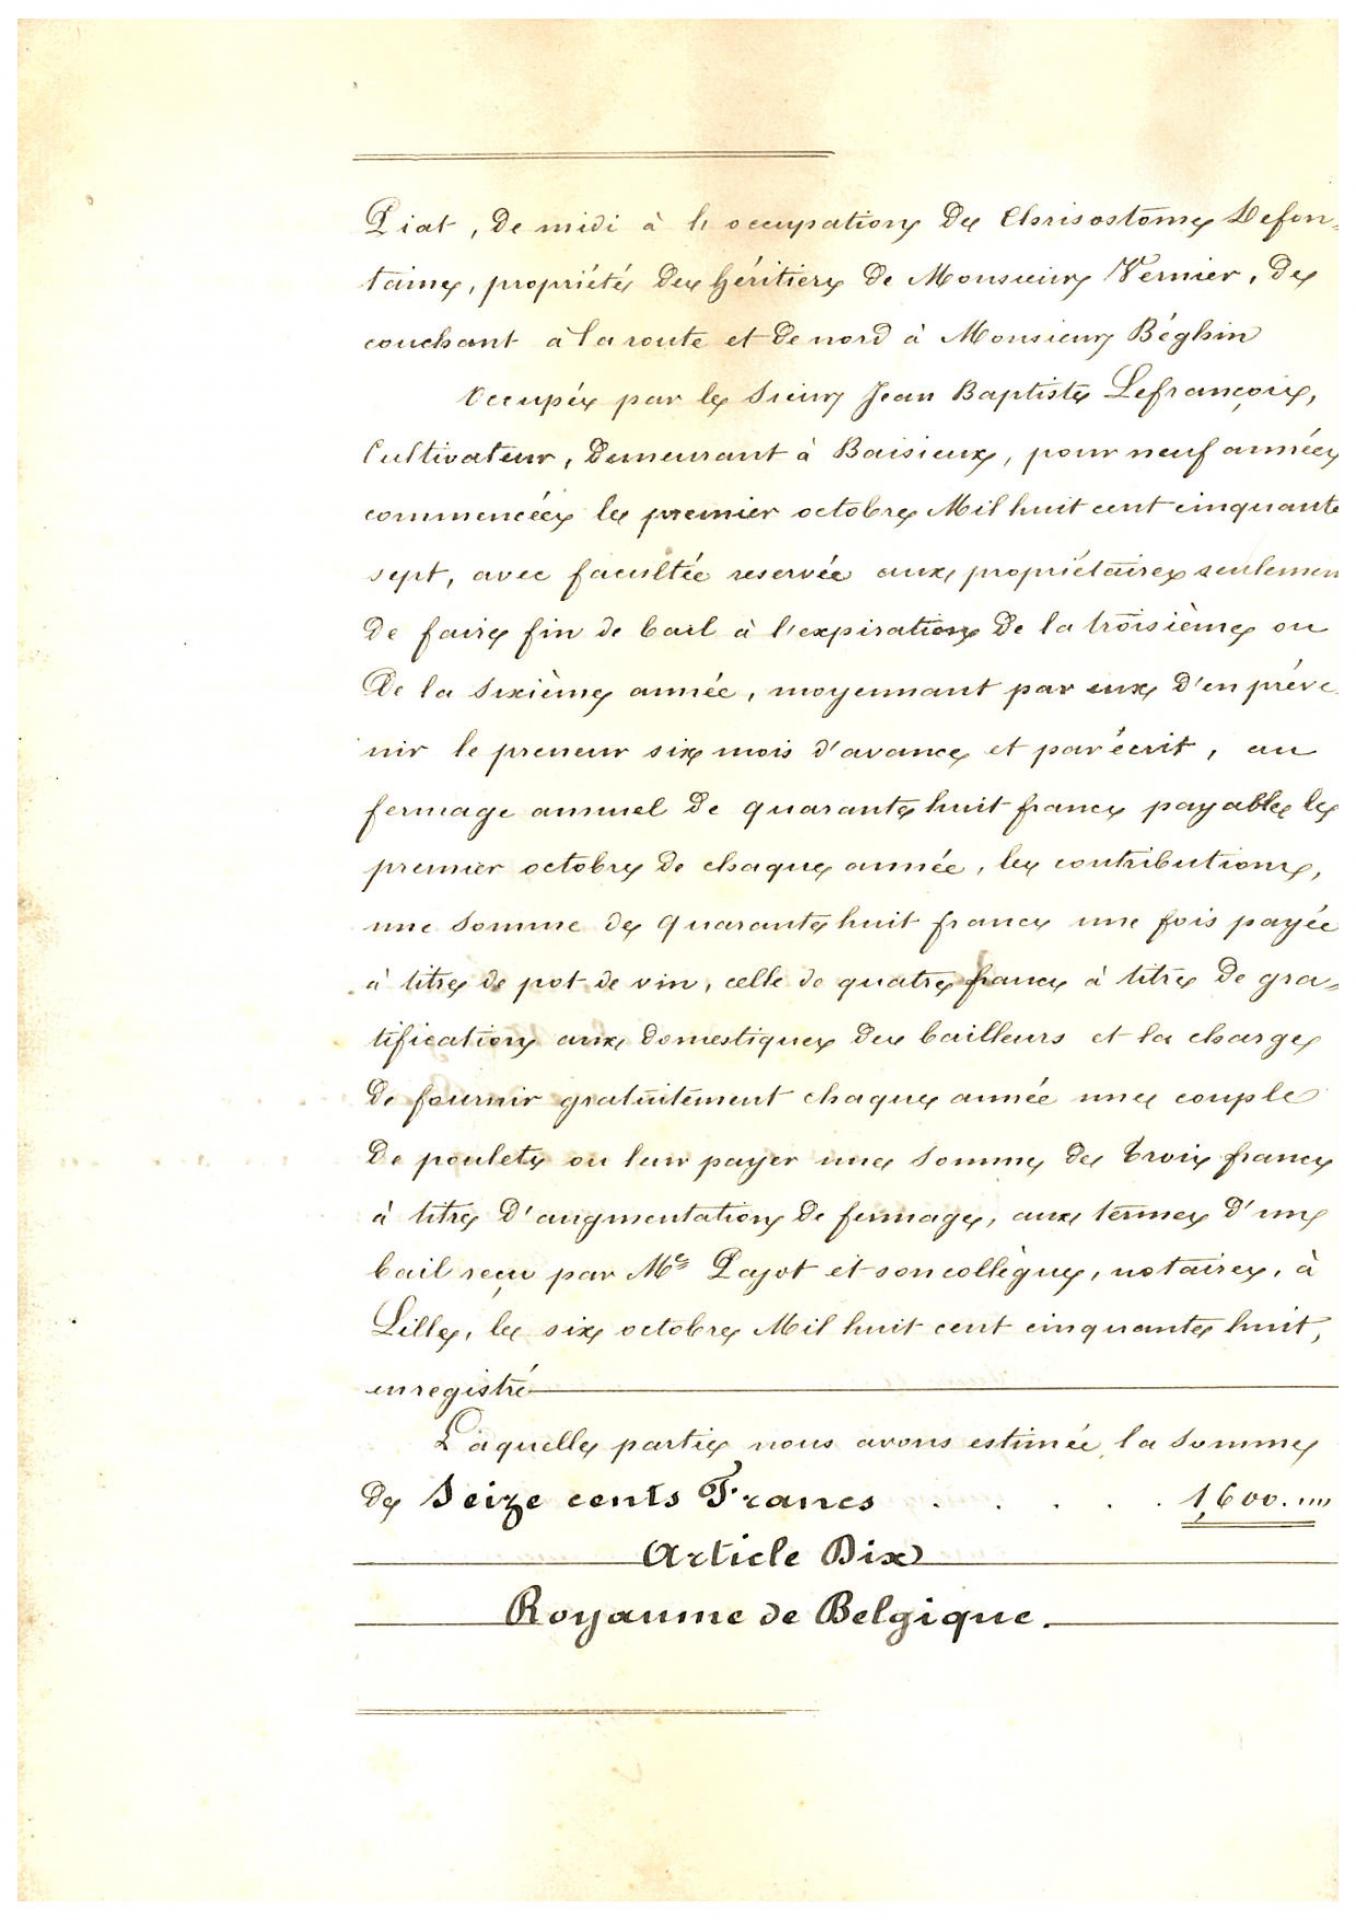 Piat, de midi à l'occupation de Chrisostôme Defon=
taine, propriété des héritiers de Monsieur Vernier, de
couchant à la route et de nord à Monsieur Béghin
Occupée par le sieur Jean Baptiste Lefrançois,
Cultivateur, demeurant à Baisieux, pour neuf années
commencées le premier octobre Mil huit cent cinquante
sept, avec facultée reservée aux propriétaires seulemen
de faire fin de bail à l'expiration de la troisième ou
De la sixième année, moyennant par eux d'en préve
nir le preneur six mois d'avance et par écrit, au
fermage annuel de quarante huit francs payable le
premier octobre de chaque année, les contributions,
une somme de quarante huit francs une fois payée
à titre de pot de vin, celle de quatre francs à titre de gra=
tification aux domestiques des bailleurs et la charge
de fournir gratuitement chaque année une couple
De poulets ou leur payer une somme de trois francs
à titre d'augmentation de fermage, aux termes d'un
bail reçu par Me Pajot et son collègue, notaires, à
Lille, le six octobre Mil huit cent cinquante huit,
enregistré
Laquelle partie nous avons estimée, la somme
de Seize cents Francs . . . . . 1,600.""
Article Dix
Royaume de Belgique.